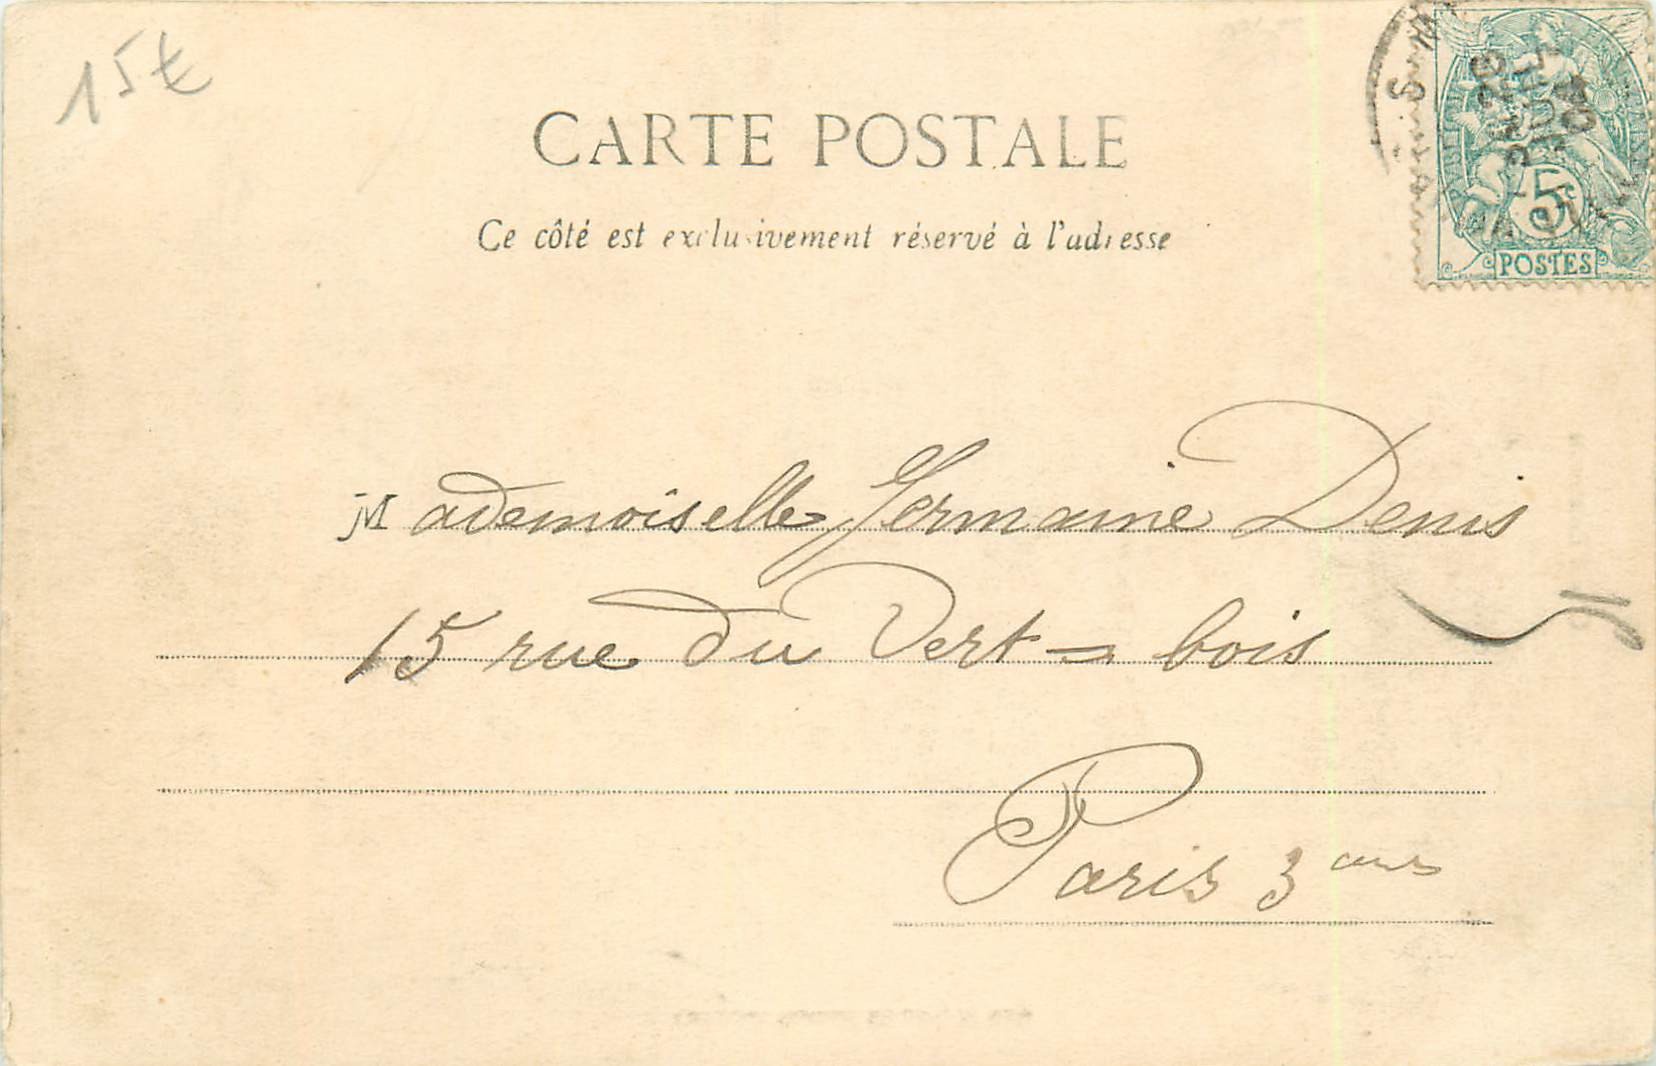 15€
CARTE POSTALE
Ce côté est exclusivement réservé à l'adresse
5c
POSTES
JUIL
04
Mademoiselle Germaine Denis
15 rue du Vert-bois
Paris 3